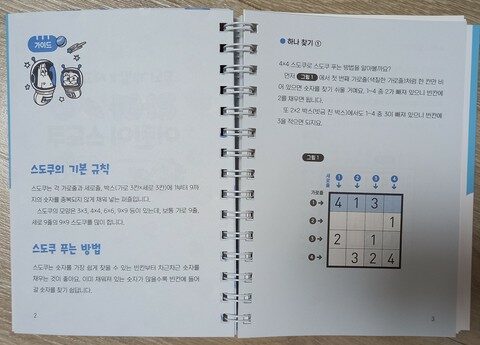 가이드
스도쿠의 기본 규칙
스도쿠는 각 가로줄과 세로줄, 박스(가로 3칸×세로 3칸)에 1부터 9까
지의 숫자를 중복되지 않게 채워 넣는 퍼즐입니다.
스도쿠의 모양은 3×3, 4×4, 6×6, 9×9 등이 있는데, 보통 가로 9줄,
세로 9줄의 9×9 스도쿠를 많이 합니다.
스도쿠 푸는 방법
스도쿠는 숫자를 가장 쉽게 찾을 수 있는 빈칸부터 차근차근 숫자를
채우는 것이 좋아요. 이미 채워져 있는 숫자가 많을수록 빈칸에 들어
갈 숫자를 찾기 쉽답니다.
2
하나 찾기 ①
4×4 스도쿠로 스도쿠 푸는 방법을 알아볼까요?
먼저 그림 1 에서 첫 번째 가로줄(색칠한 가로줄)처럼 한 칸만 비
어 있으면 숫자를 찾기 쉬울 거예요. 1~4 중 2가 빠져 있으니 빈칸에
2를 채우면 됩니다.
또 2×2 박스(빗금 친 박스)에서도 1~4 중 3이 빠져 있으니 빈칸에
3을 적으면 되지요.
그림 1
세로줄 1 2 3 4
가로줄
1 4 1 3
2 1
3 2 1
4 3 2 4
3